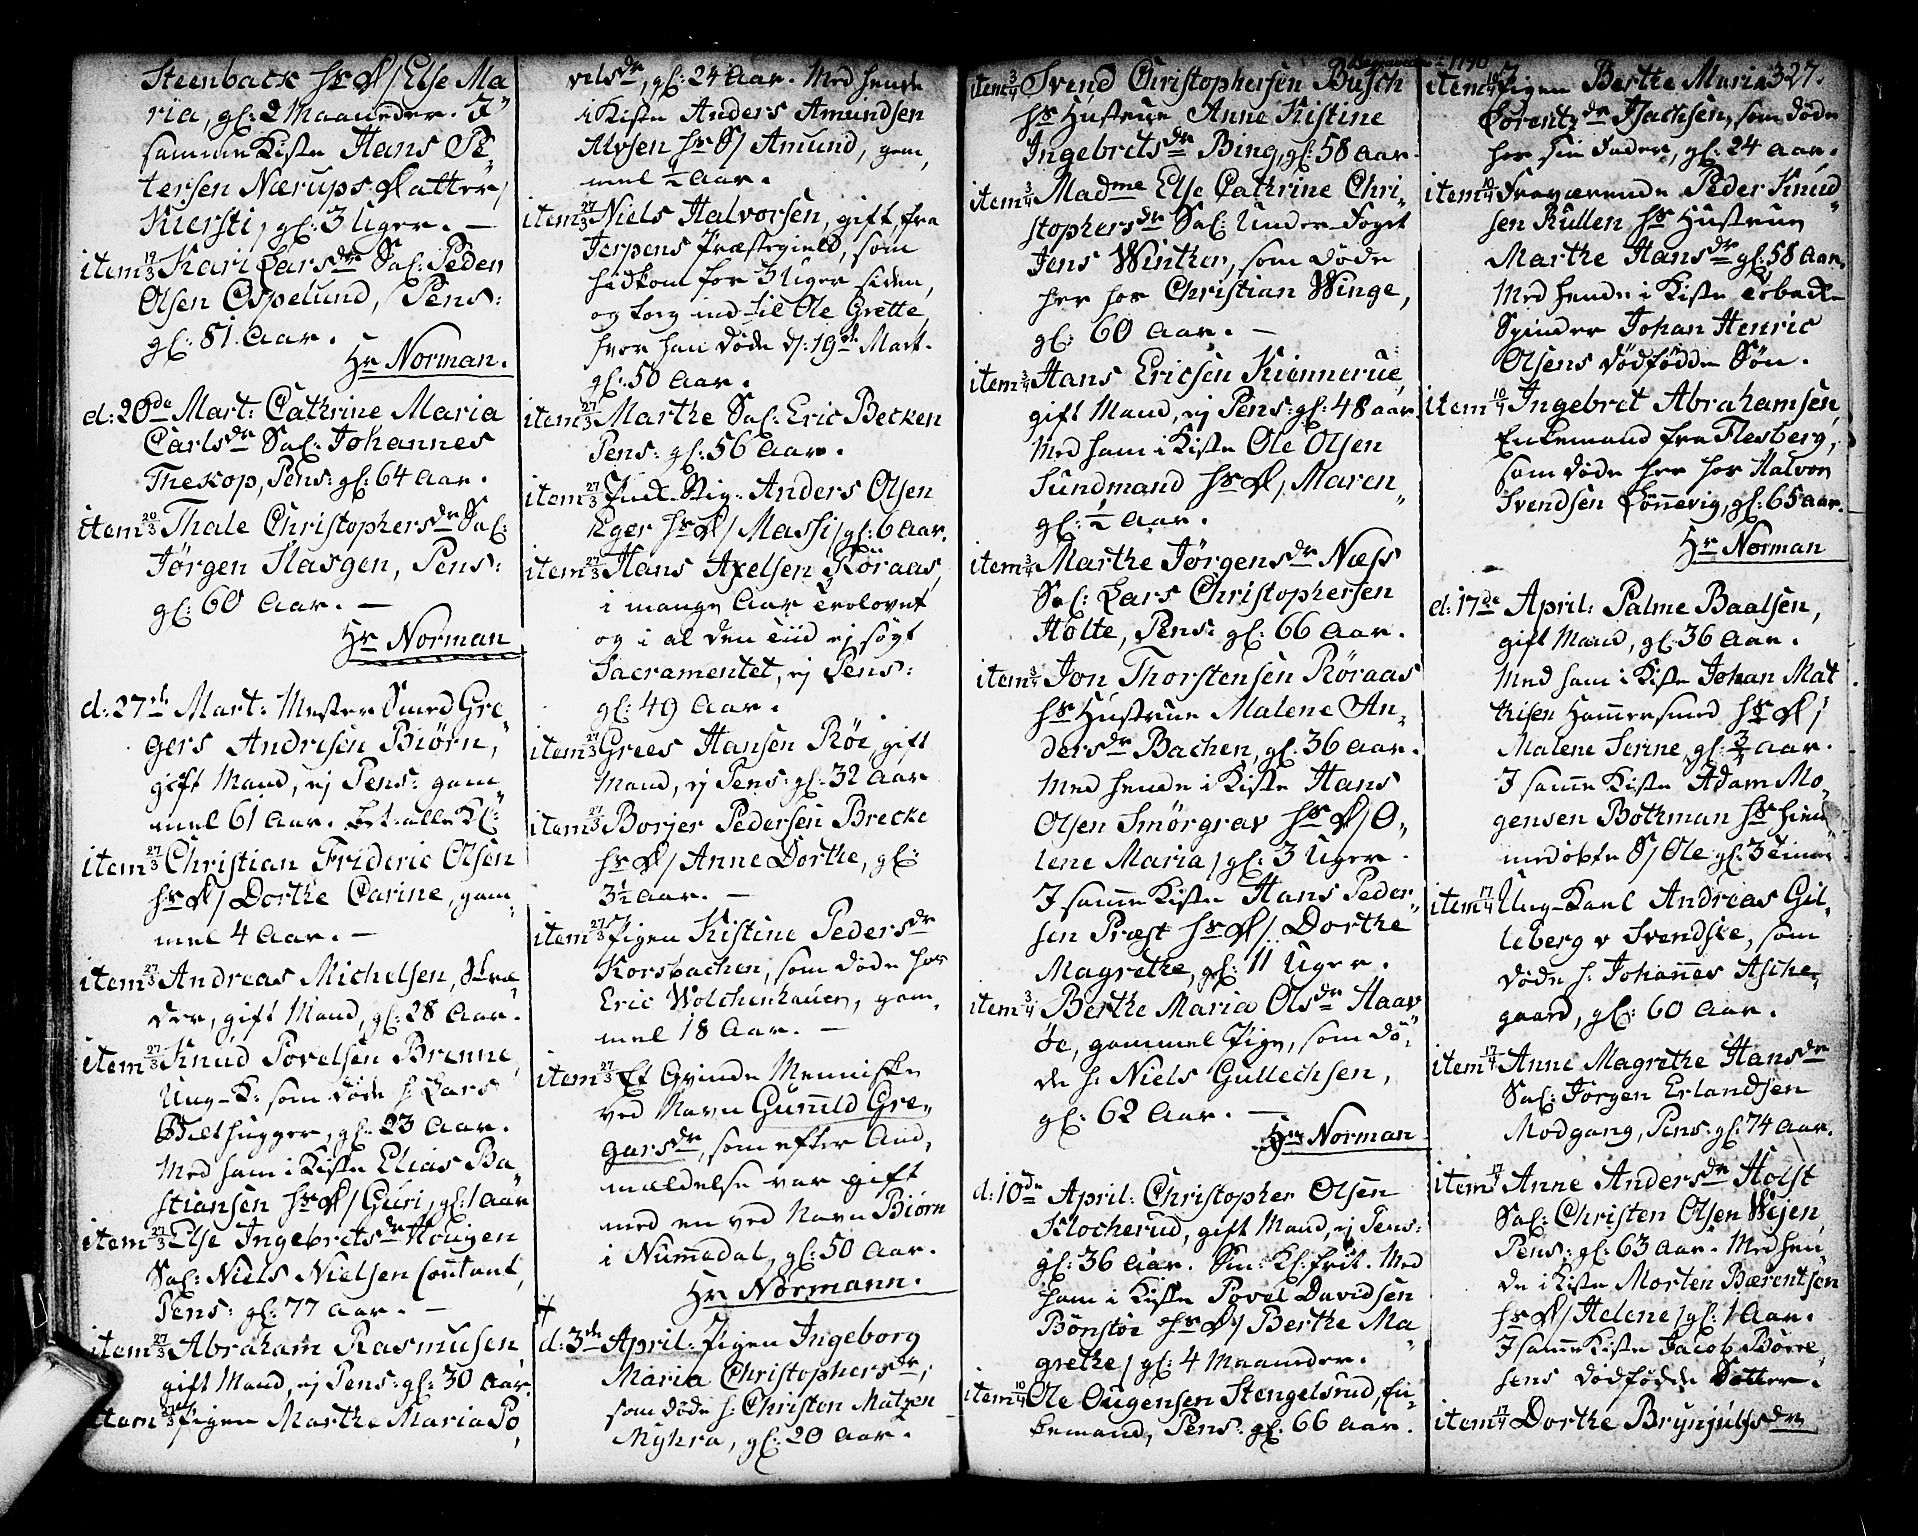 Steenback hr D/ Else Ma
ria, gl: 2 Maaneder. I
samme Kiste Hans Pe
tersen Nærups Datter/
Kiersti, gl: 3 Uger. —
item 19/3 Kari Larsdr Sal: Peder
Olsen Espelund, Pens:
gl: 81 Aar.
Hr Norman.
d: 20de Mart: Cathrine Maria
Carlsdr Sal: Johannes
Theskop, Pens: gl: 64 Aar.
item 20/3 Thale Christophersdr Sal:
Jörgen Hasgen, Pens:
gl: 60 Aar. —
Hr Norman
d: 27de Mart: Mester Smed Gre„
gers Andrisen Biørn,
gift Mand, ej Pens: gam„
mel 61 Aar. Bet: alle Kl:
item 27/3 Christian Frideric Olsen
hr D/ Dorthe Carine, gam„
mel 4 Aar. —
item 27/3 Andreas Michelsen, Skræ„
der, gift Mand, gl: 28 Aar.
item 27/3 Knud Povelsen Brenne,
Ung-K: som døde h: Lars
Bilthugger, gl: 23 Aar.
Med ham i Kiste Elias Ba„
stiansen hr D/ Guri, gl: 1 Aar
item 27/3 Else Ingebretsdr Hougen
Sal: Niels Nielsen Contant,
Pens: gl: 77 Aar. —
item 27/3 Abraham Rasmusen,
gift Mand, ej Pens: gl: 30 Aar.
item 27/3 Pigen Marthe Maria Po„
velsdr, gl: 24 Aar. Med hende
i Kiste Anders Amundsen
Alvsen hr S/ Amund, gam„
mel ½ Aar.
item 27/3 Niels Halvorsen, gift, fra
Jerpens Præstegield, som
hidkom for 3 Uger siden,
og tog ind til Ole Grette,
hvor han døde d: 19de Mart.
gl: 50 Aar.
item 27/3 Marthe Sal: Eric Becken
Pens: gl: 56 Aar.
item 27/3 Anders Olsen
Eger hr D/ Massi/ gl: 6 Aar.
item 27/3 Hans Axelsen Röraas,
i mange Aar trolovet
og i al den tiid ej søgt
Sacramentet, ej Pens:
gl: 49 Aar.
item 27/3 Grees Hansen Röi, gift
Mand, ej Pens: gl: 32 Aar
item 27/3 Borjer Pedersen Brecke
hr D/ Anne Dorthe, gl:
3½ Aar. —
item 27/3 Pigen Kistine Pedersdr
Korsbachen, som døde hos
Eric Wolchenhauer, gam„
mel 18 Aar. —
item 27/3 Et Qvinde Menniske
ved Navn Gunnild Gre„
garsdr, som efter And„
mældelse var gift
med en ved Navn Biørn
i Nummedal, gl: 50 Aar.
Hr Normann.
d: 3de April: Pigen Ingeborg
Maria Christophersdr,
som døde h: Christen Matzen
Myhra, gl: 20 Aar.
Begravede 1790
item 3/4 Svend Christophersen Busch
hr Hustrue Anne Kistine
Ingebretsdr Bing, gl: 58 Aar.
item 3/4 Madme Else Cathrine Chri„
stophersdr Sal: Under-Foget
Jens Winther, som døde
her hos Christian Winge,
gl: 60 Aar. —
item 3/4 Hans Ericsen Kiennerue,
gift Mand, ej Pens: gl: 48 Aar
Med ham i Kiste Ole Olsen
Sundmand hr D/ Maren„
gl: ½ Aar.
item 3/4 Marthe Jörgensdr Næss
Sal: Lars Christophersen
Holte, Pens: gl: 66 Aar.
item 3/4 Jon Thorstensen Röraas
hr Hustrue Malene An„
dersdr Bachen, gl: 36 Aar.
Med hende i Kiste Hans
Olsen Smörgrav hr D/ O„
lene Maria/ gl: 3 Uger.
I samme Kiste Hans Peder„
sen Præst hr D/ Dorthe
Magrethe, gl: 11 Uger.
item 3/4 Berthe Maria Olsdr Haav
öe, gammel Pige, som dø„
de h: Niels Gullechsen,
gl: 62 Aar. —
Hr Norman
d: 10de April: Christopher Olsen
Klocherud, gift Mand, ej Pens:
gl: 36 Aar. Sm: Kl: frit. Med
ham i Kiste Povel Davidsen
Bönstöe hr D/ Berthe Ma„
grethe/ gl: 4 Maaneder.
item 10/4 Ole Ougensen Stengelsrud, En„
kemand, Pens: gl: 66 Aar.
327.
item 10/4 Pigen Berthe Maria
Lorentzdr Isachsen, som døde
hos sin Fader, gl: 24 Aar.
item 10/4 Fraværende Peder Knud„
sen Rullen hr Hustrue
Marthe Hansdr gl: 58 Aar.
Med hende i Kiste Tobacks
Spinder Johan Henric
Olsens dødfødde Søn.
item 10/4 Ingebret Abrahamsen,
Enkemand fra Flesberg,
som døde her hos Halvor
Svendsen Lönnevig, gl: 65 Aar.
Hr Norman
d: 17de April: Palme Baalsen,
gift Mand, gl: 36 Aar.
Med ham i Kiste Johan Mat
thisen Hammersmed hr D/
Malene Serine, gl: ¾ Aar.
I samme Kiste Adam Mo„
gensen Bothman hr hiem„
medøbte S/ Ole gl: 3 Timer
item 17/4 Ung-Karl Andreas Gil„
leberg v Svendske, som
døde h: Johannes Asche„
gaard, gl: 60 Aar.
item 17/4 Anne Magrethe Hansdr
Sal: Jörgen Erlandsen
Modgang, Pens: gl: 74 Aar.
item 17/4 Anne Andersdr Holst
Sal: Christen Olsen Wejen,
Pens: gl: 63 Aar. Med hen„
de i Kiste Morten Bærentsen
hr D/ Helene/ gl: 1 Aar.
I samme Kiste Jacob Börre„
sens dødfødde Datter.
item 17/4 Dorthe Brynjulfsdr